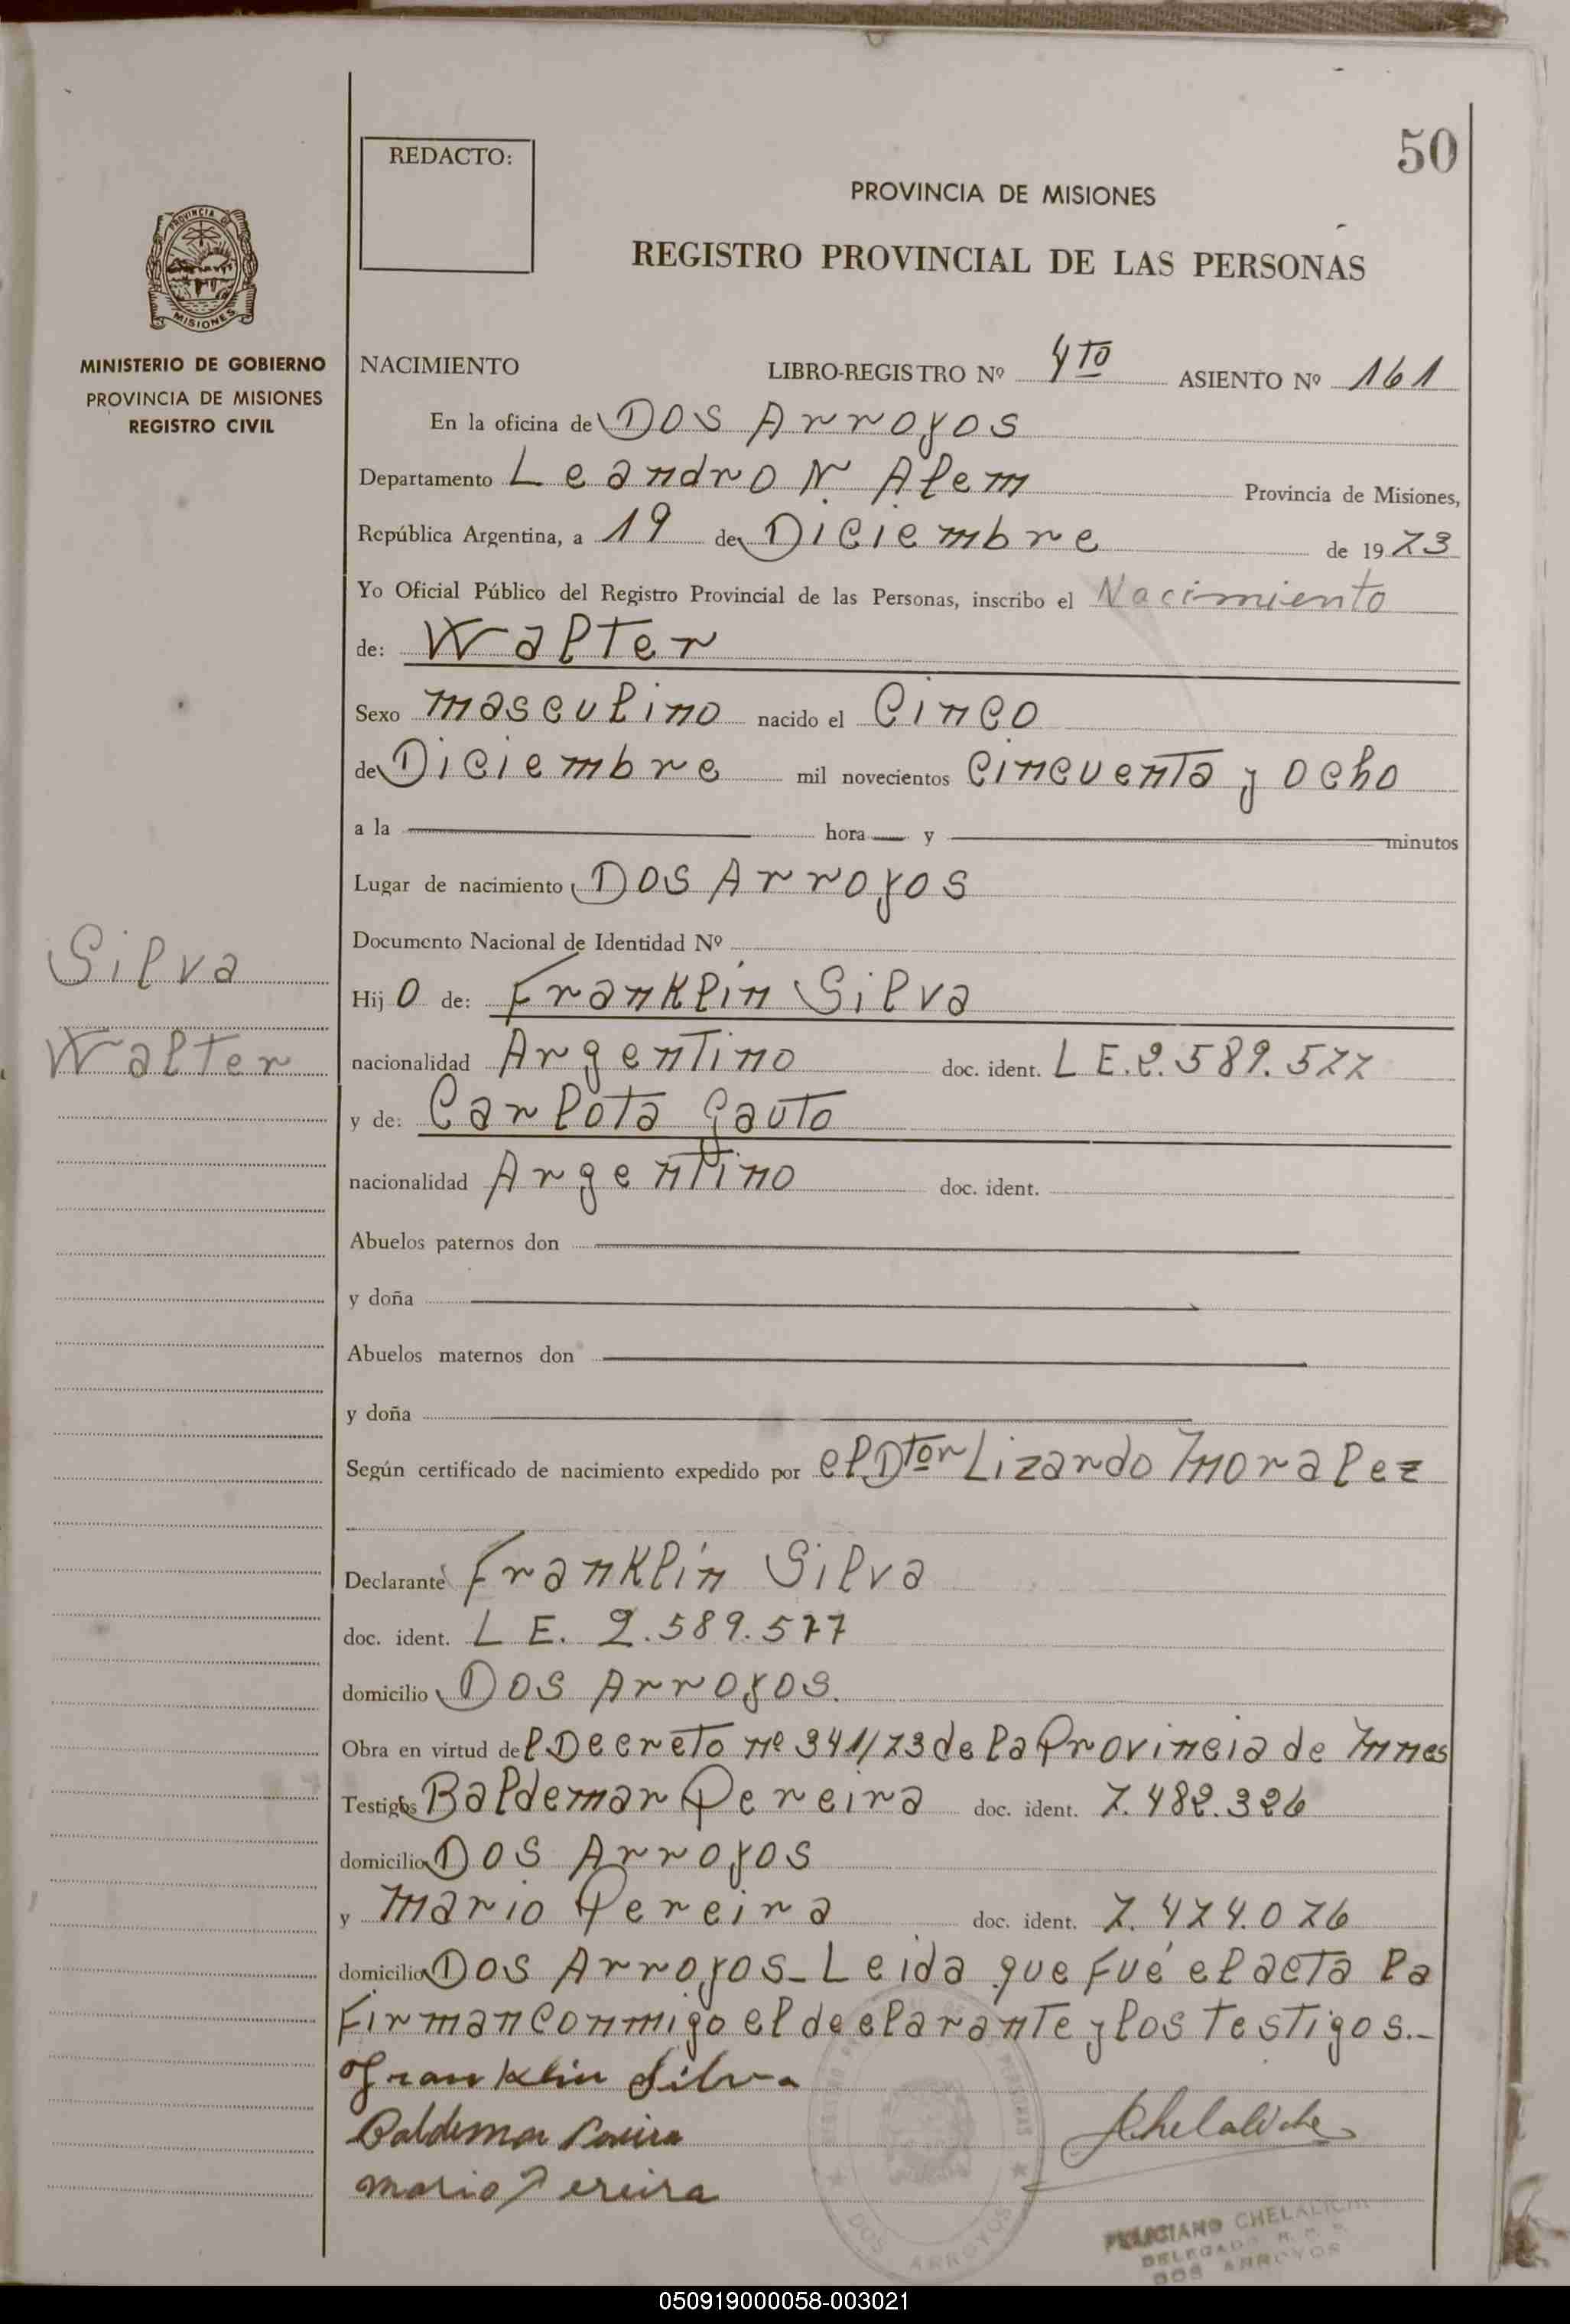 50
REDACTO:
PROVINCIA DE MISIONES
REGISTRO PROVINCIAL DE LAS PERSONAS
PROVINCIA DE
MISIONES
MINISTERIO DE GOBIERNO
PROVINCIA DE MISIONES
REGISTRO CIVIL
NACIMIENTO LIBRO-REGISTRO Nº 4to ASIENTO Nº 161
En la oficina de Dos Arroyos
Departamento Leandro N. Alem Provincia de Misiones,
República Argentina, a 19 de Diciembre de 1973
Yo Oficial Público del Registro Provincial de las Personas, inscribo el Nacimiento
de: Walter
Sexo masculino nacido el Cinco
de Diciembre mil novecientos Cincuenta y ocho
a la hora y minutos
Lugar de nacimiento Dos Arroyos
Documento Nacional de Identidad Nº
Silva
Walter
Hijo de: Franklin Silva
nacionalidad Argentino doc. ident. L E. 2.589.577
y de: Carlota Gauto
nacionalidad Argentino doc. ident.
Abuelos paternos don
y doña
Abuelos maternos don
y doña
Según certificado de nacimiento expedido por el Dtor Lizando Moralez
Declarante Franklin Silva
doc. ident. L E. 2.589.577
domicilio Dos Arroyos.
Obra en virtud del Decreto nº 341/73 de la Provincia de Mnes
Testigos Baldemar Pereira doc. ident. 7.482.326
domicilio Dos Arroyos
y Mario Pereira doc. ident. 7.474.076
domicilio Dos Arroyos_ Leida que fué el acta la
firman conmigo el declarante y los testigos.-
Franklin Silva
Baldemar Pereira
Mario Pereira
Chelaliche
DOS ARROYOS
FELICIANO CHELALICHE
DELEGADO R. P. P.
DOS ARROYOS
050919000058-003021